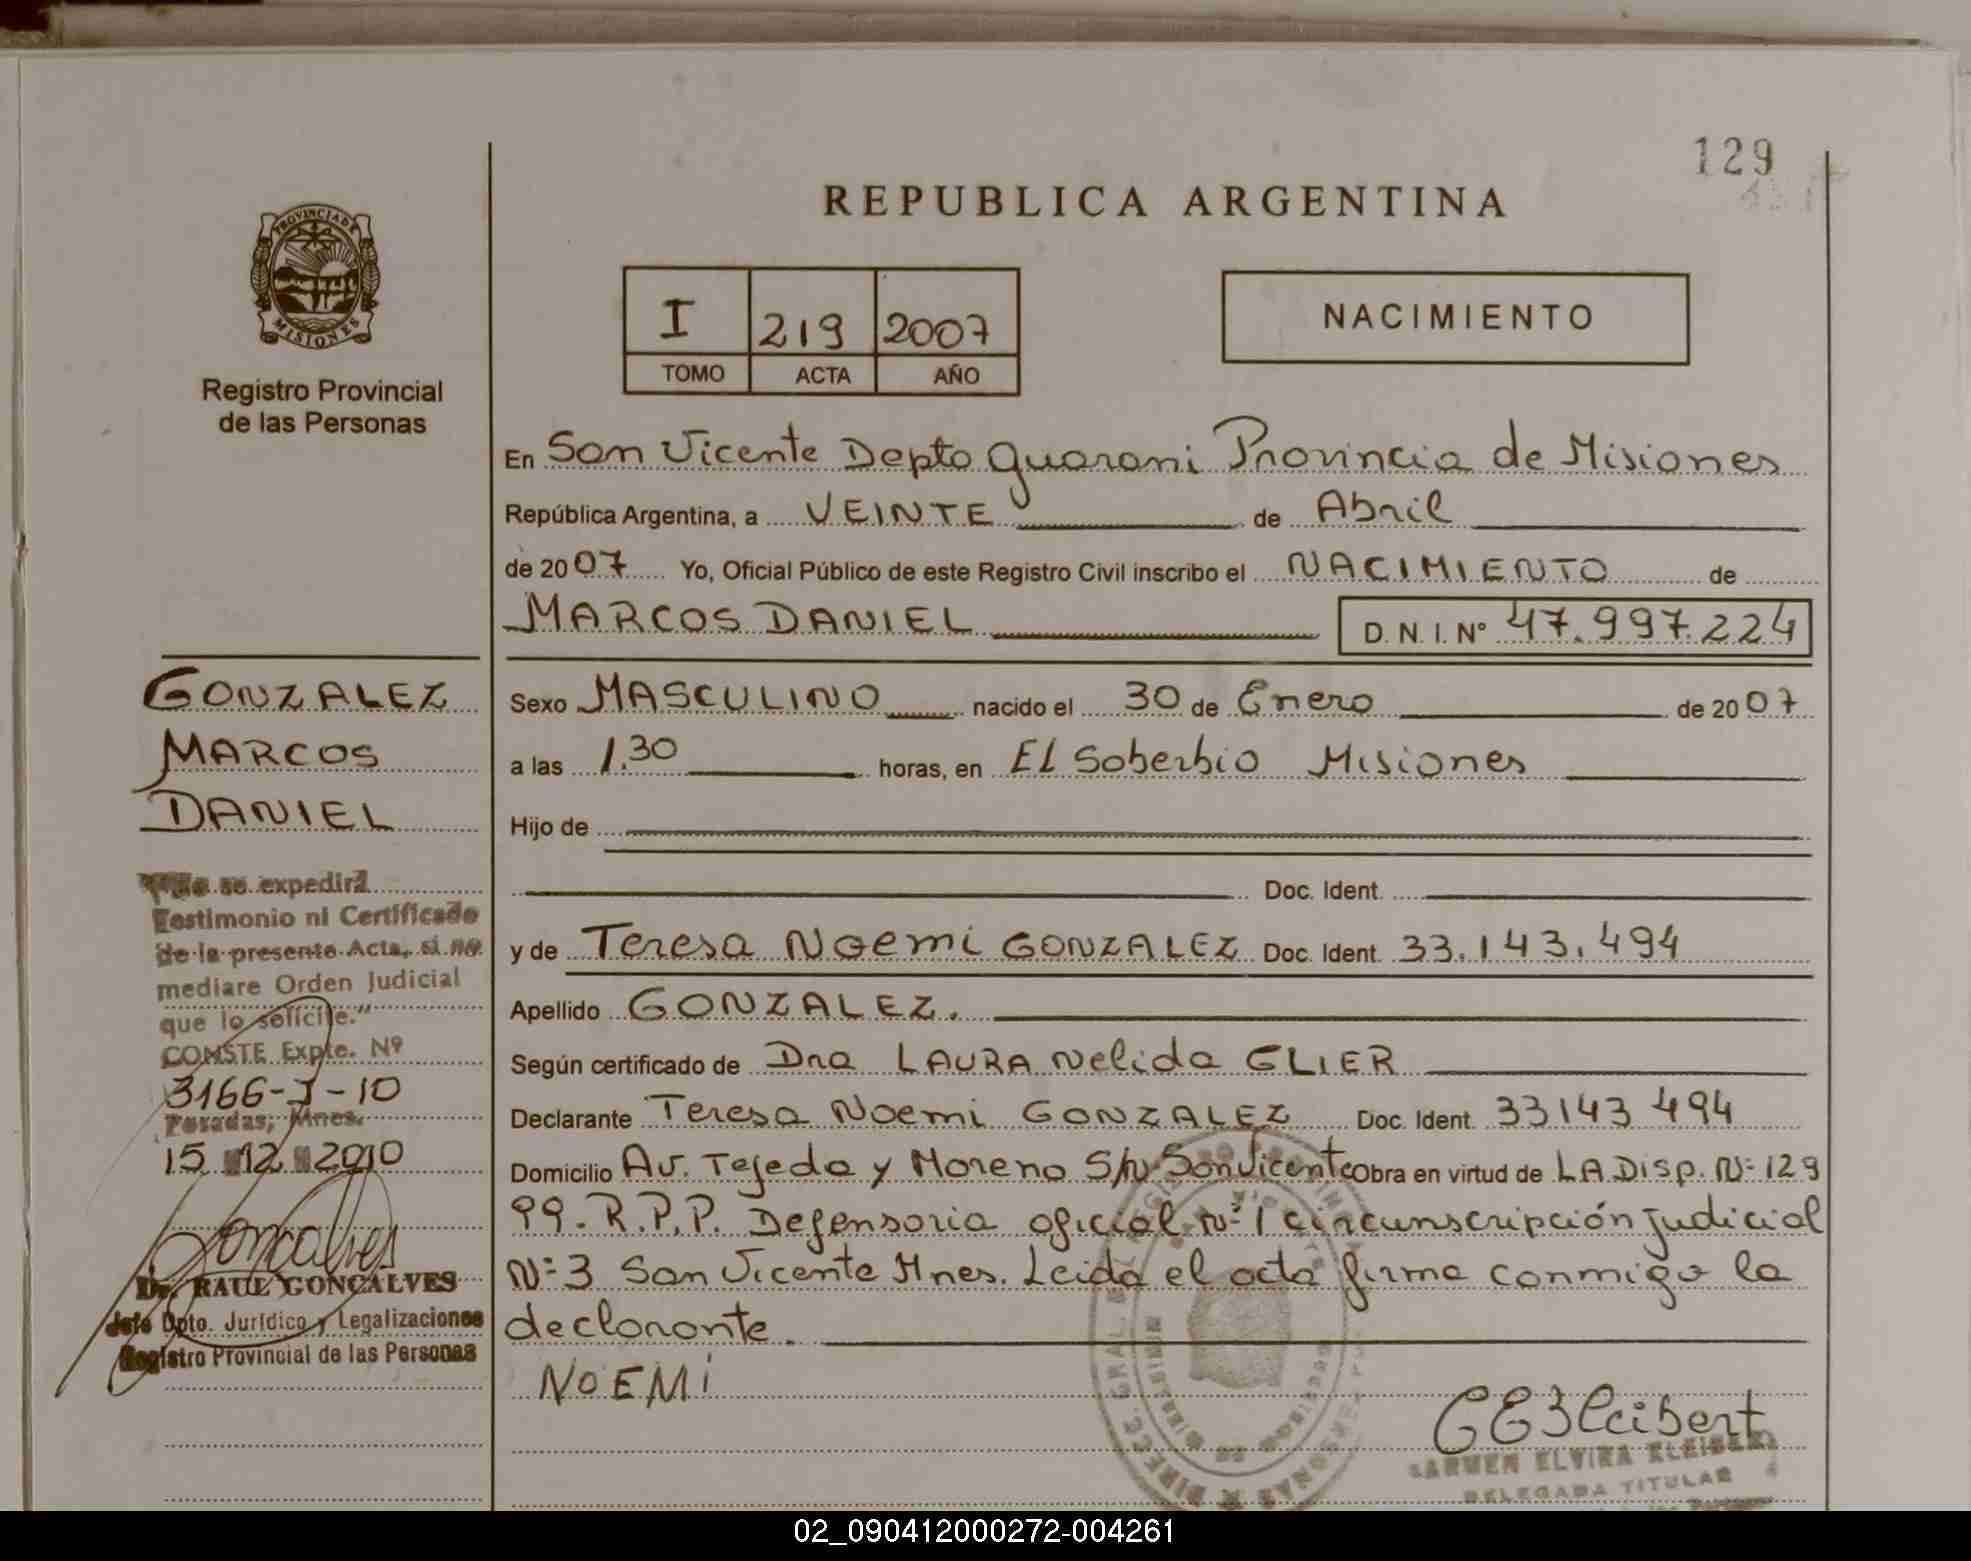 129
REPUBLICA ARGENTINA
PROVINCIA DE
MISIONES
Registro Provincial
de las Personas
I 219 2007
TOMO ACTA AÑO
NACIMIENTO
En San Vicente Depto Guarani Provincia de Misiones
República Argentina, a VEINTE de Abril
de 2007 Yo, Oficial Público de este Registro Civil inscribo el NACIMIENTO de
MARCOS DANIEL D.N.I.Nº 47.997.224
Sexo MASCULINO nacido el 30 de Enero de 2007
a las 1.30 horas, en El Soberbio Misiones
Hijo de
Doc. Ident.
y de Teresa Noemi GONZALEZ Doc. Ident. 33.143.494
Apellido GONZALEZ.
Según certificado de Dra LAURA Nelida GLIER
Declarante Teresa Noemi GONZALEZ Doc. Ident. 33143494
Domicilio Av. Tejeda y Moreno S/N San Vicente Obra en virtud de LA Disp. Nº 129
99-R.P.P. Defensoria oficial Nº 1 circunscripción judicial
Nº 3 San Vicente Mnes. Leida el acta firma conmigo la
declarante.
NOEMI
CEKleibert
CARMEN ELVIRA KLEIBERT
DELEGADA TITULAR
GONZALEZ
MARCOS
DANIEL
se expedirá
Testimonio ni Certificado
de la presente Acta, si no
mediare Orden Judicial
que lo solicite."
CONSTE Expte. Nº
3166-J-10
Posadas, Mnes.
15 12 2010
Goncalves
Dr. RAUL GONCALVES
Jefe Dpto. Jurídico y Legalizaciones
Registro Provincial de las Personas
02_090412000272-004261